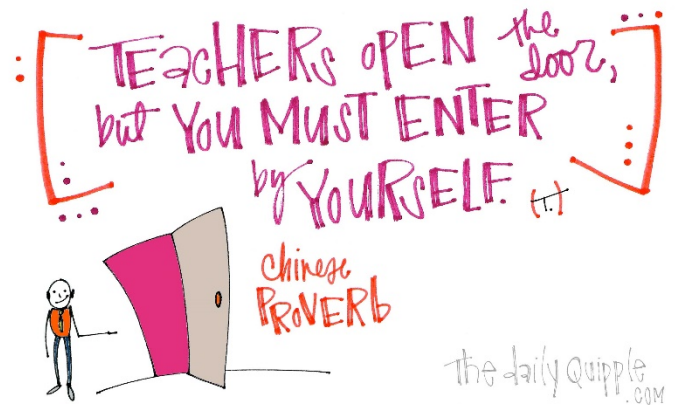 TEACHERS OPEN the door,
but YOU MUST ENTER
by YOURSELF. (T.)
chinese
PROVERb
The daily Quipple
.COM